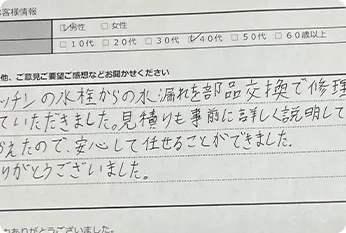 客様情報
☑男性 □女性
□10代 □20代 □30代 ☑40代 □50代 □60歳以上
他、ご意見ご要望ご感想などお聞かせください
ッチンの水栓からの水漏れを部品交換で修理
ていただきました。見積りも事前に詳しく説明して
らえたので、安心して任せることができました.
りがとうございました。
ありがとうございました。